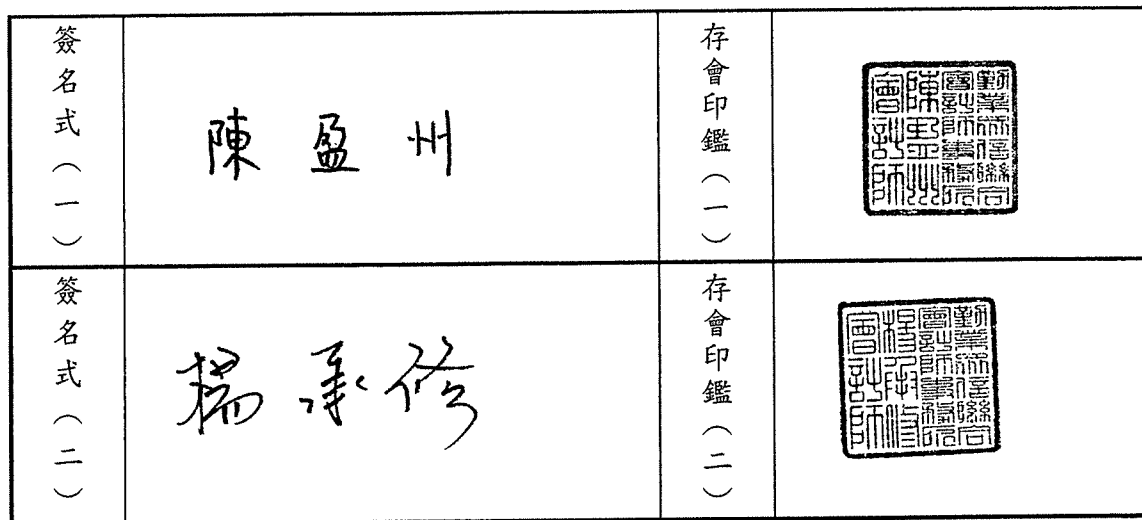 簽名式（一）
陳盈州
存會印鑑（一）
勤業眾信聯合
會計師事務所
陳盈州
會計師
簽名式（二）
楊承修
存會印鑑（二）
勤業眾信聯合
會計師事務所
楊承修
會計師